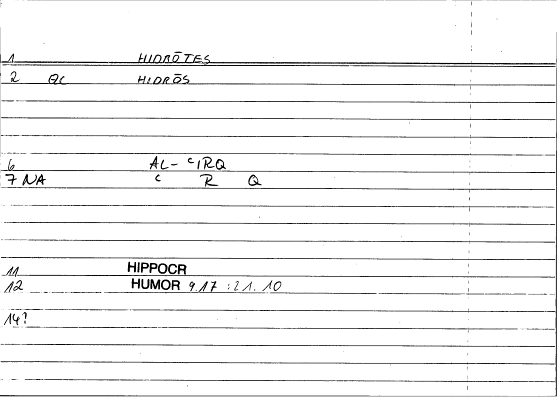 1 HIDRŌTES
2 QC HIDRŌS
6 AL- ᶜIRQ
7 NA ᶜ R Q
11 HIPPOCR
12 HUMOR 9.17 :21.10
14?